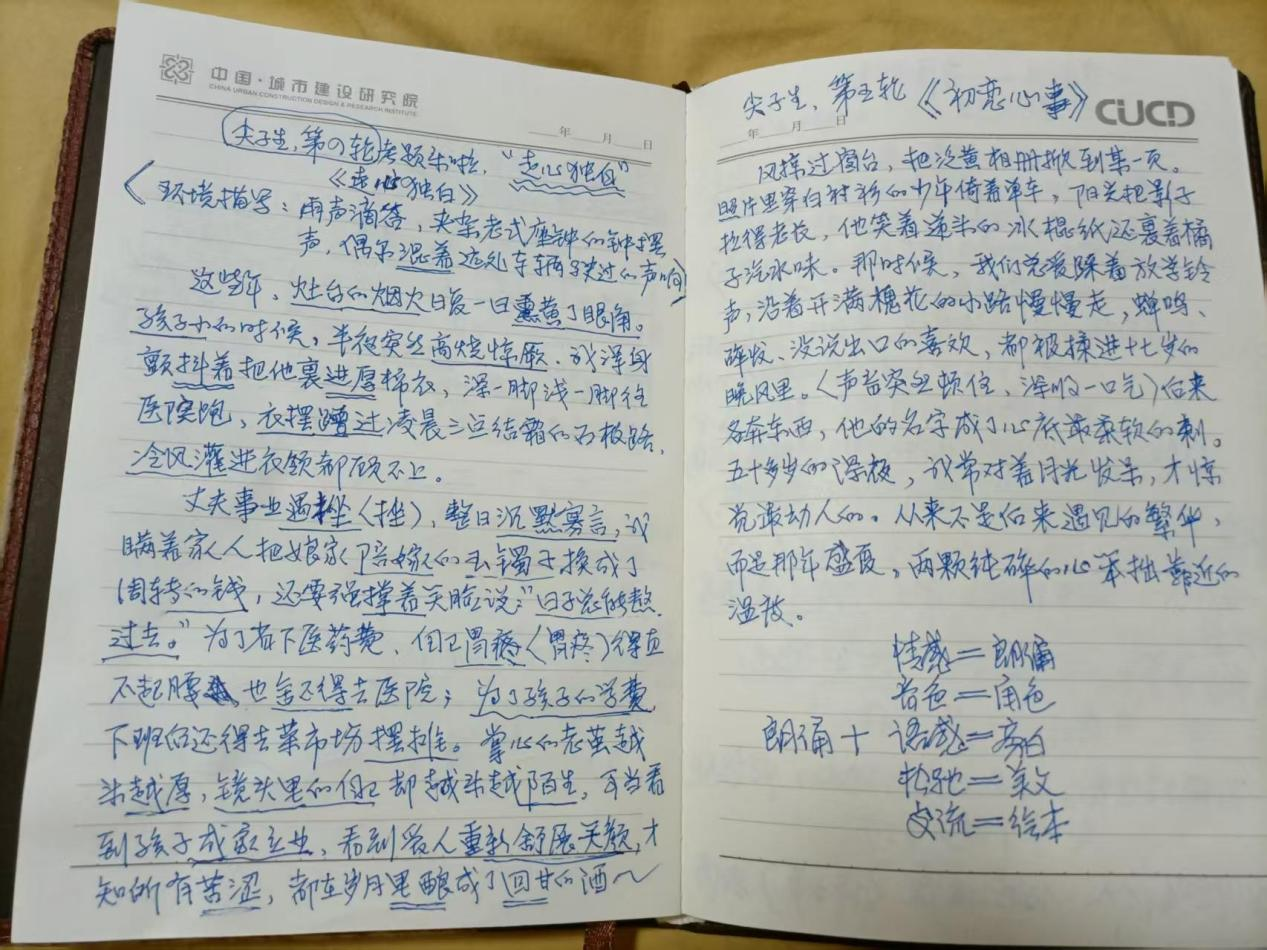 中国·城市建设研究院
CHINA URBAN CONSTRUCTION DESIGN & RESEARCH INSTITUTE
年 月 日
尖子生,第四轮考题来啦,“走心独白”
《走心独白》
(环境描写:雨声滴答,夹杂老式座钟的钟摆
声,偶尔混着远处车辆驶过的声响)
这些年,灶台的烟火日复一日熏黄了眼角。
孩子小的时候,半夜突然高烧惊厥,我浑身
颤抖着把他裹进厚棉衣,深一脚浅一脚往
医院跑,衣摆蹭过凌晨三点结霜的石板路,
冷风灌进衣领都顾不上。
丈夫事业遇挫(挫),整日沉默寡言,我
瞒着家人把娘家陪嫁的玉镯子换成了
周转的钱,还要强撑着笑脸说:“日子总能熬
过去。”为了省下医药费,自己胃疼(胃疼)得直
不起腰也舍不得去医院;为了孩子的学费,
下班后还得去菜市场摆摊。掌心的老茧越
来越厚,镜头里的自己却越来越陌生,可当看
到孩子成家立业,看到爱人重新舒展笑颜,才
知所有苦涩,都在岁月里酿成了回甘的酒~
尖子生,第五轮《初恋心事》
CUCD
年 月 日
风掠过窗台,把泛黄相册掀到某一页。
照片里穿白衬衫的少年倚着单车,阳光把影子
拉得老长,他笑着递来的冰棍纸还裹着橘
子汽水味。那时候,我们总爱踩着放学铃
声,沿着开满槐花的小路慢慢走,蝉鸣、
碎发、没说出口的喜欢,都被揉进十七岁的
晚风里。(声音突然顿住,深吸一口气)后来
各奔东西,他的名字成了心底最柔软的刺。
五十多岁的深夜,我常对着月光发呆,才惊
觉最动人的。从来不是后来遇见的繁华,
而是那年盛夏,两颗纯碎的心笨拙靠近的
温度。
情感=朗诵
音色=角色
朗诵+ 语感=旁白
松弛=美文
交流=绘本